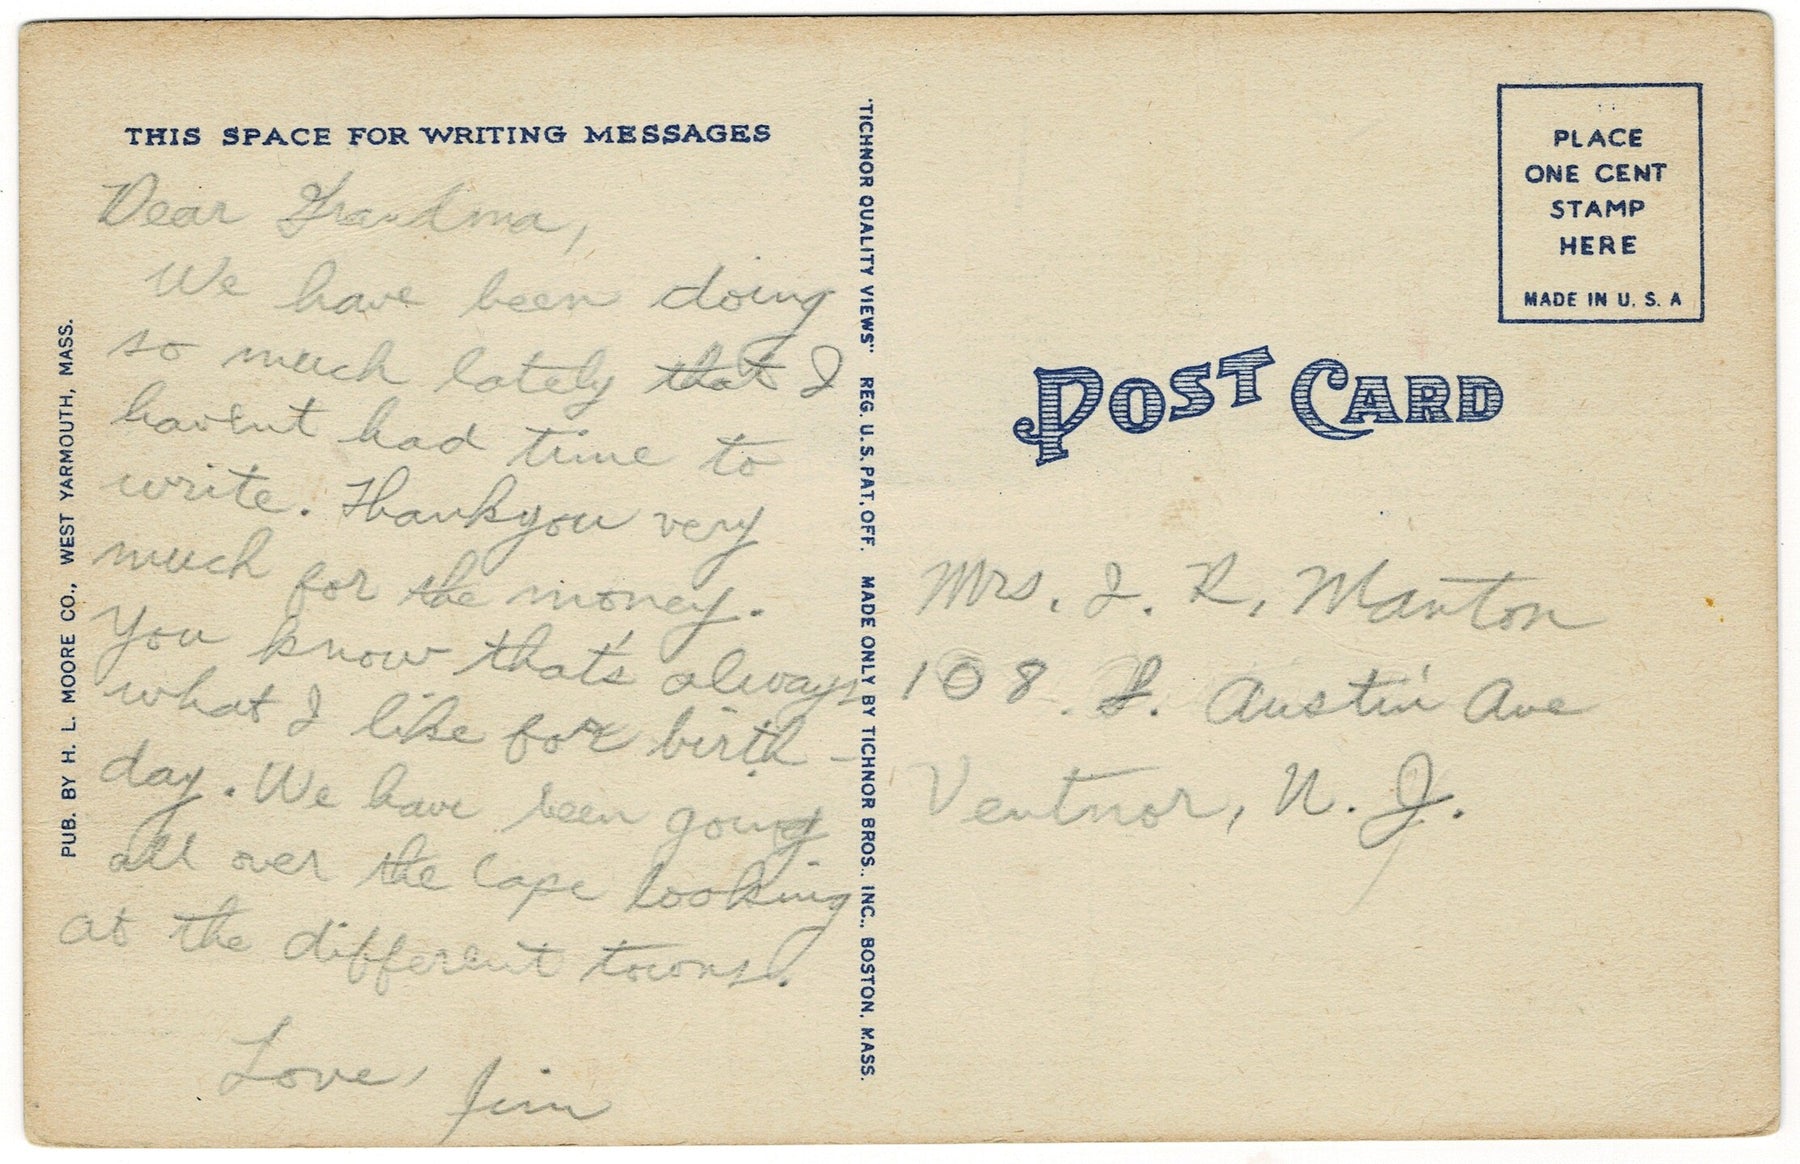 THIS SPACE FOR WRITING MESSAGES
Dear Grandma,
We have been doing
so much lately that I
havent had time to
write. Thankyou very
much for the money.
You know that's always
what I like for birth-
day. We have been going
all over the Cape looking
at the different towns.
Love, Jim
PUB. BY H. L. MOORE CO., WEST YARMOUTH, MASS.
"TICHNOR QUALITY VIEWS" REG. U.S. PAT. OFF. MADE ONLY BY TICHNOR BROS., INC., BOSTON, MASS.
PLACE
ONE CENT
STAMP
HERE
MADE IN U. S. A
POST CARD
Mrs. J. R. Manton
108 S. Austin Ave
Ventnor, N. J.